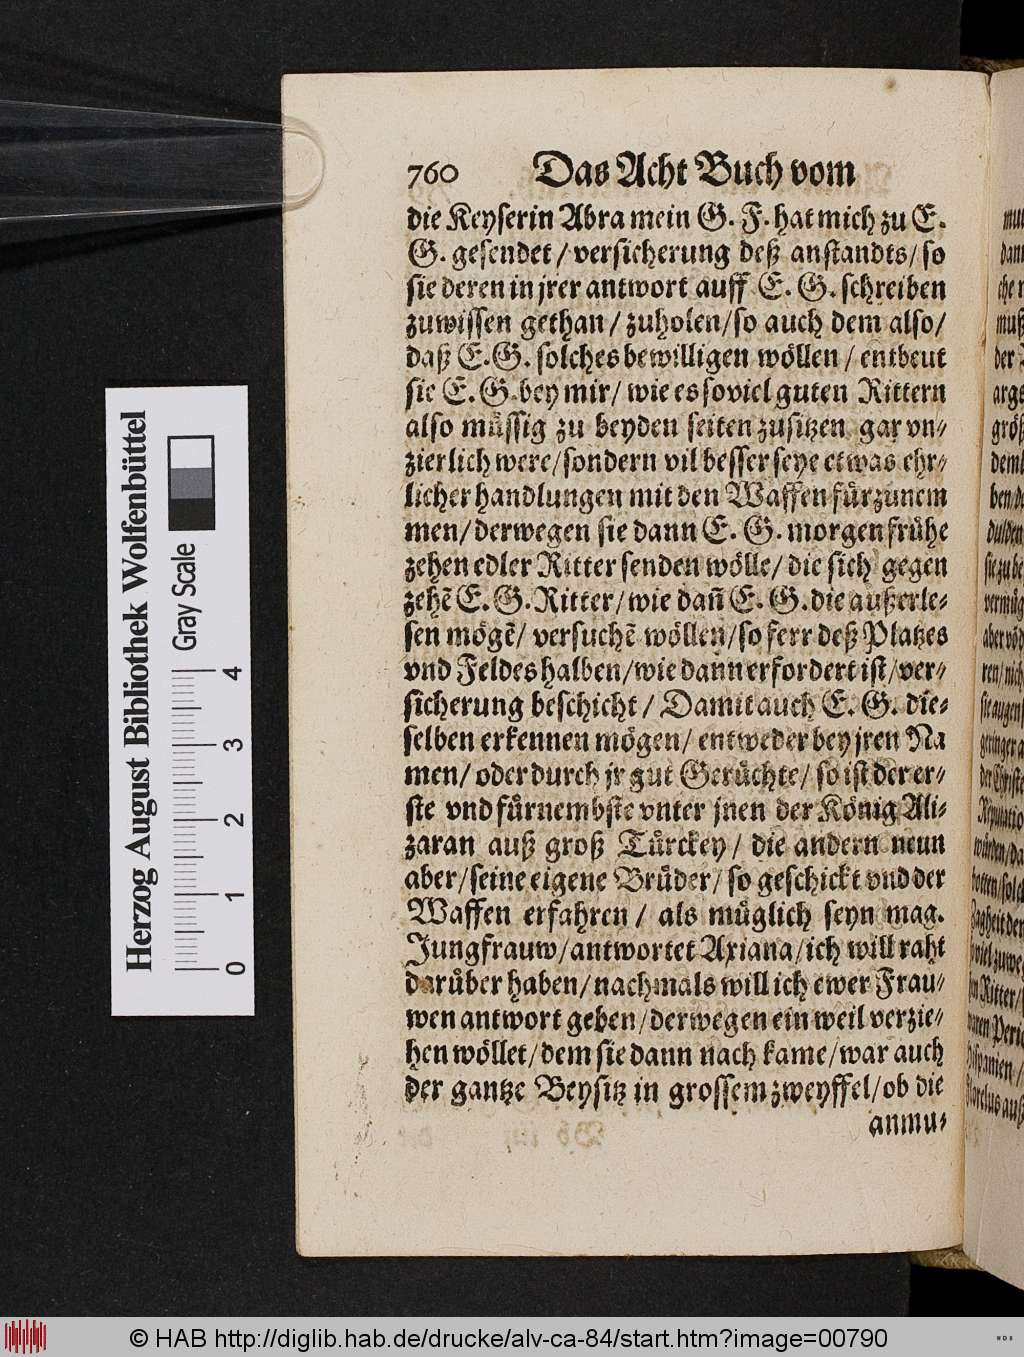 760 Das Acht Buch vom
die Keyserin Abra mein G. F. hat mich zu E.
G. gesendet / versicherung deß anstandts / so
sie deren in jrer antwort auff E. G. schreiben
zuwissen gethan / zuholen / so auch dem also /
daß E. G. solches bewilligen wöllen / entbeut
sie E. G. bey mir / wie es soviel guten Rittern
also müssig zu beyden seiten zusitzen gar vn⸗
zierlich were / sondern vil besser seye etwas ehr⸗
licher handlungen mit den Waffen fürzunem
men / derwegen sie dann E. G. morgen frühe
zehen edler Ritter senden wölle / die sich gegen
zehẽ E. G. Ritter / wie dañ E. G. die außerle⸗
sen mögẽ / versuchẽ wöllen / so ferr deß Platzes
vnd Feldes halben / wie dann erfordert ist / ver⸗
sicherung beschicht / Damit auch E. G. die⸗
selben erkennen mögen / entweder bey jren Na
men / oder durch jr gut Gerüchte / so ist der er⸗
ste vnd fürnembste vnter jnen der König Ali⸗
zaran auß groß Türckey / die andern neun
aber / seine eigene Brüder / so geschickt vnd der
Waffen erfahren / als müglich seyn mag.
Jungfrauw / antwortet Axiana / ich will raht
darüber haben / nachmals will ich ewer Frau⸗
wen antwort geben / derwegen ein weil verzie⸗
hen wöllet / dem sie dann nach kame / war auch
der gantze Beysitz in grossem zweyffel / ob die
anmu⸗
Herzog August Bibliothek Wolfenbüttel
Gray Scale
0 1 2 3 4
© HAB http://diglib.hab.de/drucke/alv-ca-84/start.htm?image=00790